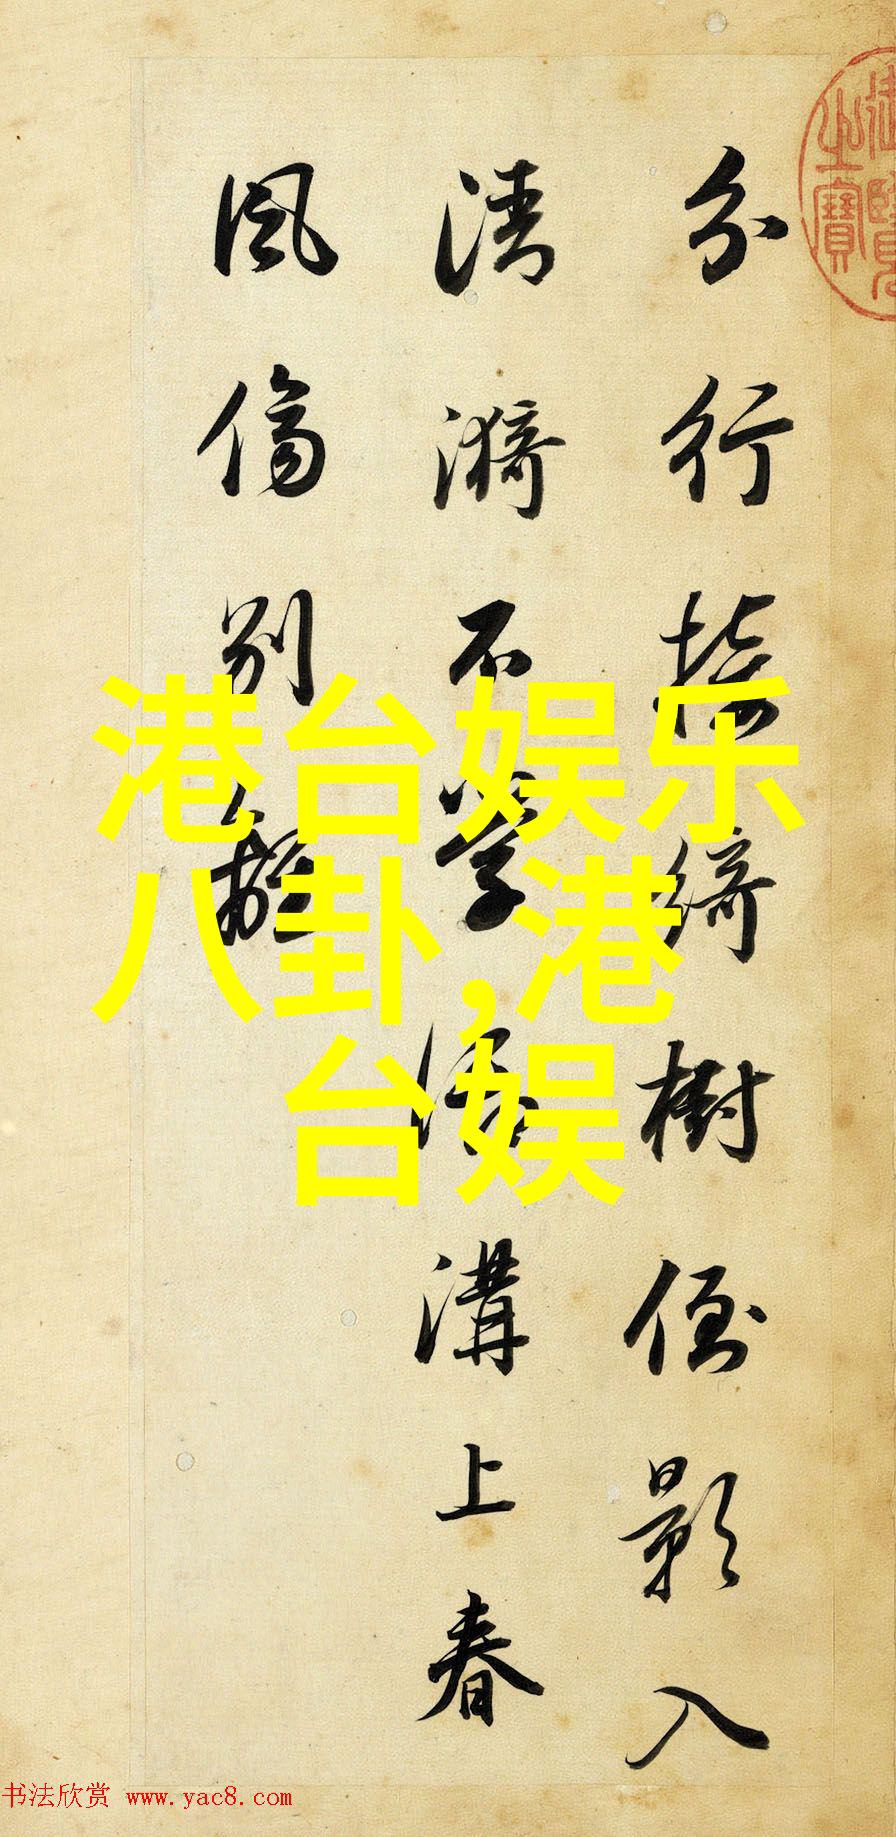 分行接綺樹倒影入
清漪不學御溝上春
風傷別離
港台娱乐
八卦,港
台娱
之寶
书法欣赏 www.yac8.com